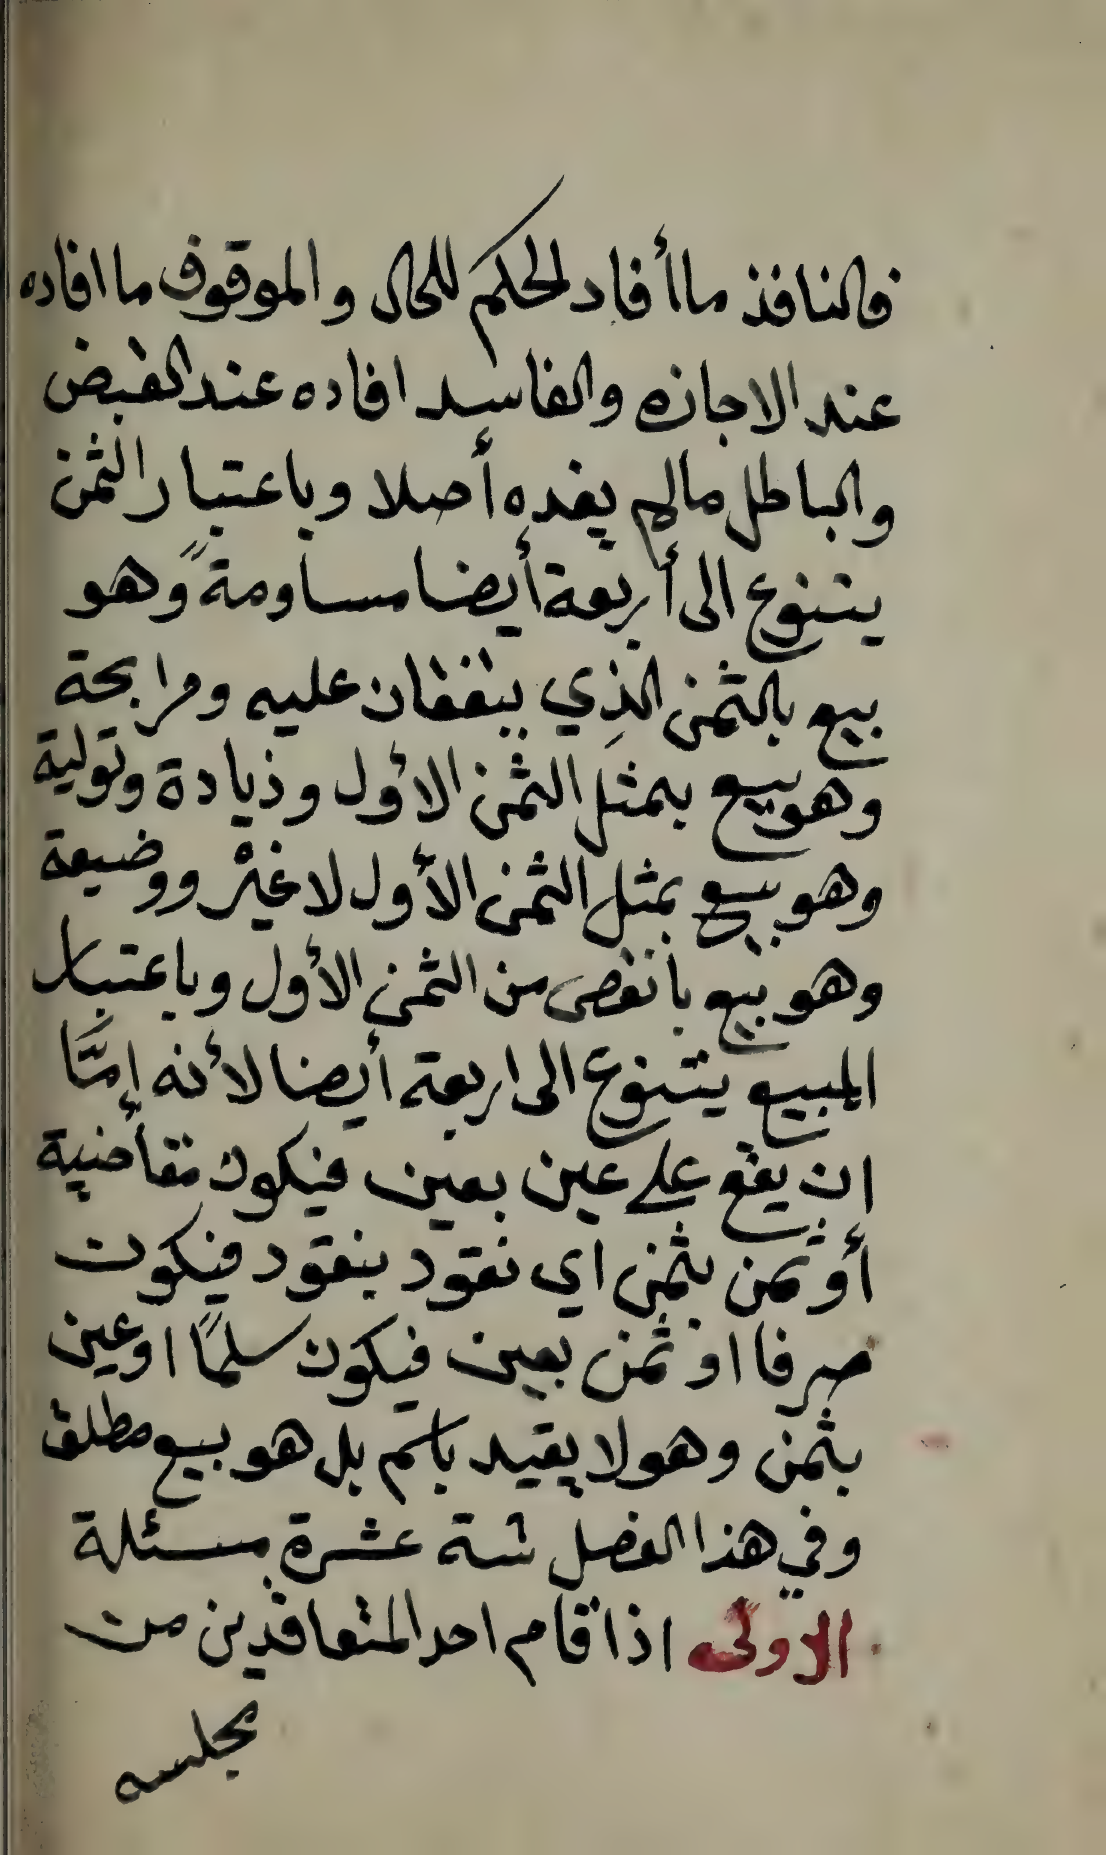 فالنافذ ما أفاد لحكم للحال والموقوف ما افاده
عند الاجازه والفاسد افاده عند القبض
والباطل مالم يفده أصلا وباعتبار الثمن
يتنوع الى أربعة أيضا مساومةً وهو
بيع بالثمن الذِي يتفقان عليه ومرابحة
وهو بيع بمثل الثمن الأول وذيادة وتولية
وهو بيع بمثل الثمن الأول لا غيْر ووضيعة
وهو بيع بأنقص من الثمن الأول وباعتبار
المبيع يتنوع الى اربعة أيضا لأنه إمَّا
ان يقع على عين بعين فيكون مقأضية
أو ثمن بثمن اي نقود بنقود فيكون
صرفا او ثمن بعين فيكون سلمًا او عين
بثمن وهو لا يقيد باسم بل هو بيع مطلق
وفي هذا الفصل ستة عشرة مسئلة
الاولى اذا قام احد المتعاقدين من
مجلسه